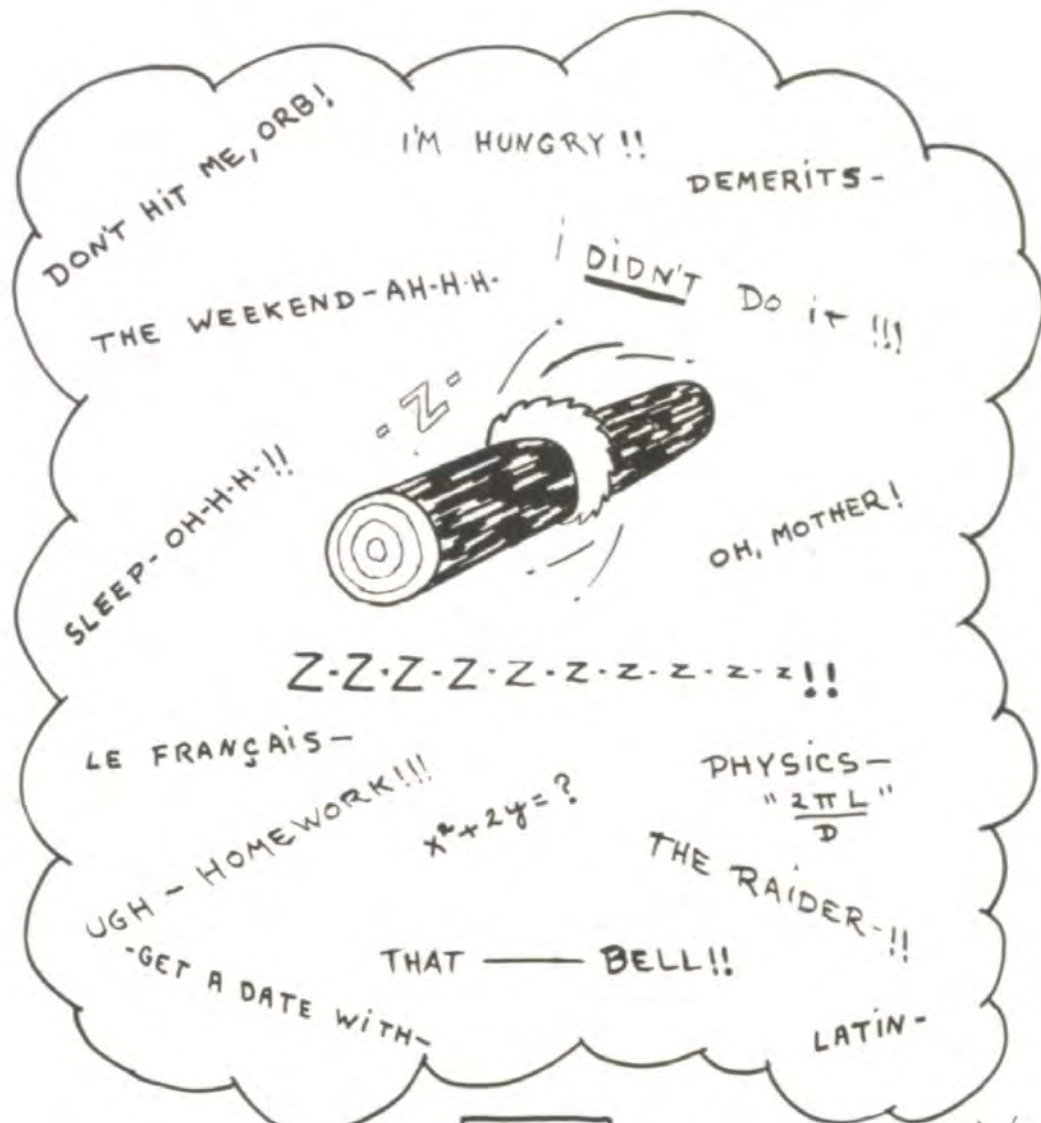 DON'T HIT ME, ORB!
I'M HUNGRY!!
DEMERITS-
THE WEEKEND-AH-H-H-
I DIDN'T DO IT!!!
-Z-
SLEEP-OH-H-H-!!
OH, MOTHER!
Z-Z-Z-Z-Z-Z-Z-Z-Z-Z!!
LE FRANÇAIS-
PHYSICS-
"2πL"
D
UGH-HOMEWORK!!!
x²+2y=?
THE RAIDER-!!
-GET A DATE WITH-
THAT —— BELL!!
LATIN-